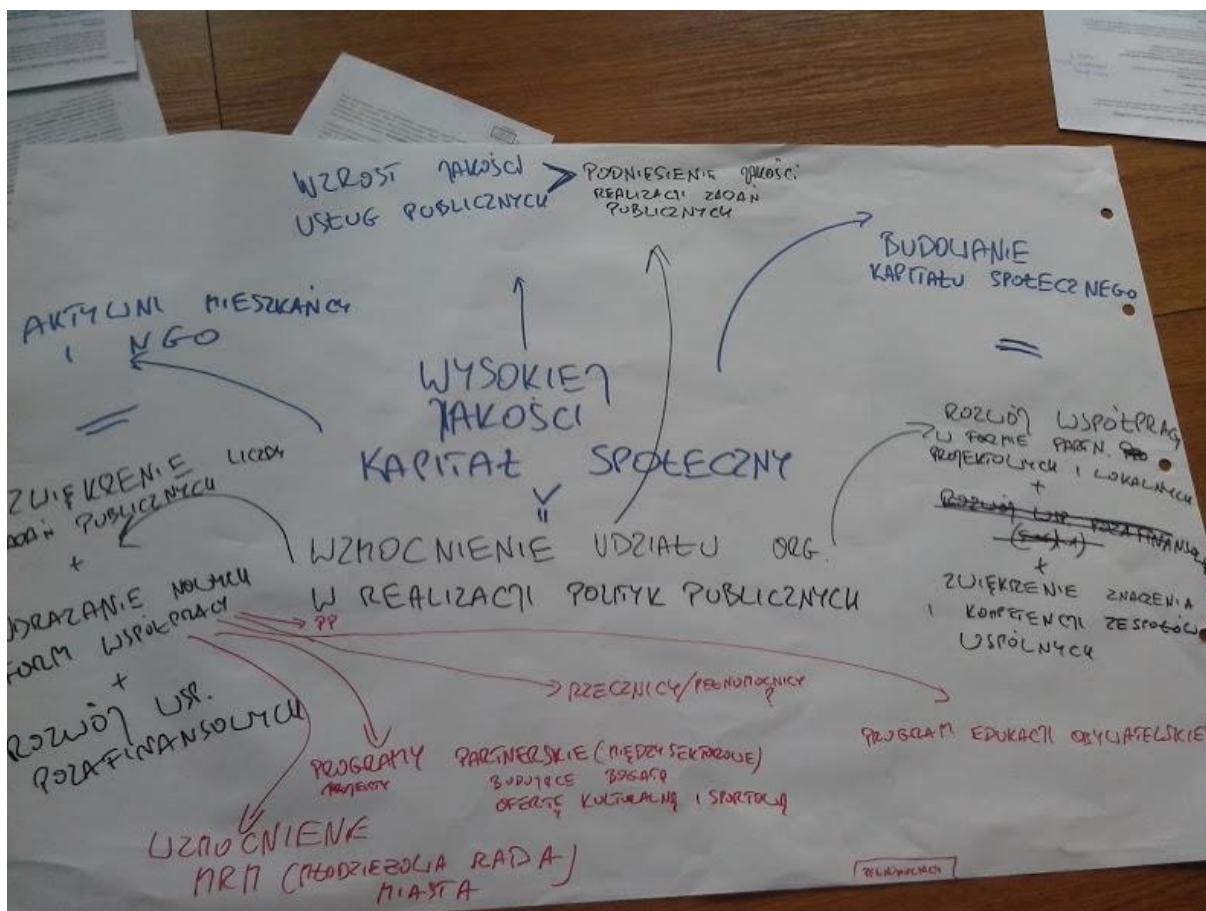 WZROST JAKOŚCI
USŁUG PUBLICZNYCH
>
PODNIESIENIE JAKOŚCI
REALIZACJI ZADAŃ
PUBLICZNYCH
BUDOWANIE
KAPITAŁU SPOŁECZNEGO
=
AKTYWNI MIESZKAŃCY
I NGO
=
WYSOKIEJ
JAKOŚCI
KAPITAŁ SPOŁECZNY
WZMOCNIENIE UDZIAŁU ORG.
W REALIZACJI POLITYK PUBLICZNYCH
ZWIĘKRZENIE LICZBY
ZADAŃ PUBLICZNYCH
+
WDRAŻANIE NOWYCH
FORM WSPÓŁPRACY
+
ROZWÓJ WSP.
POZAFINANSOWYCH
ROZWÓJ WSPÓŁPRACY
W FORMIE PARTN.
PROJEKTOWYCH I LOKALNYCH
+
ROZWÓJ WSP. POZAFINANSOW
+
ZWIĘKRZENIE ZNACZENIA
I KOMPETENCJI ZESPOŁÓW
WSPÓLNYCH
PP
RZECZNICY/PEŁNOMOCNICY
?
PROGRAM EDUKACJI OBYWATELSKIE
PROGRAMY PARTNERSKIE (MIĘDZYSEKTOROWE)
PROJEKTY BUDUJĄCE BOGATĄ
OFERTĘ KULTURALNĄ I SPORTOWĄ
WZMOCNIENIE
MRM (MŁODZIEŻOWA RADA
MIASTA)